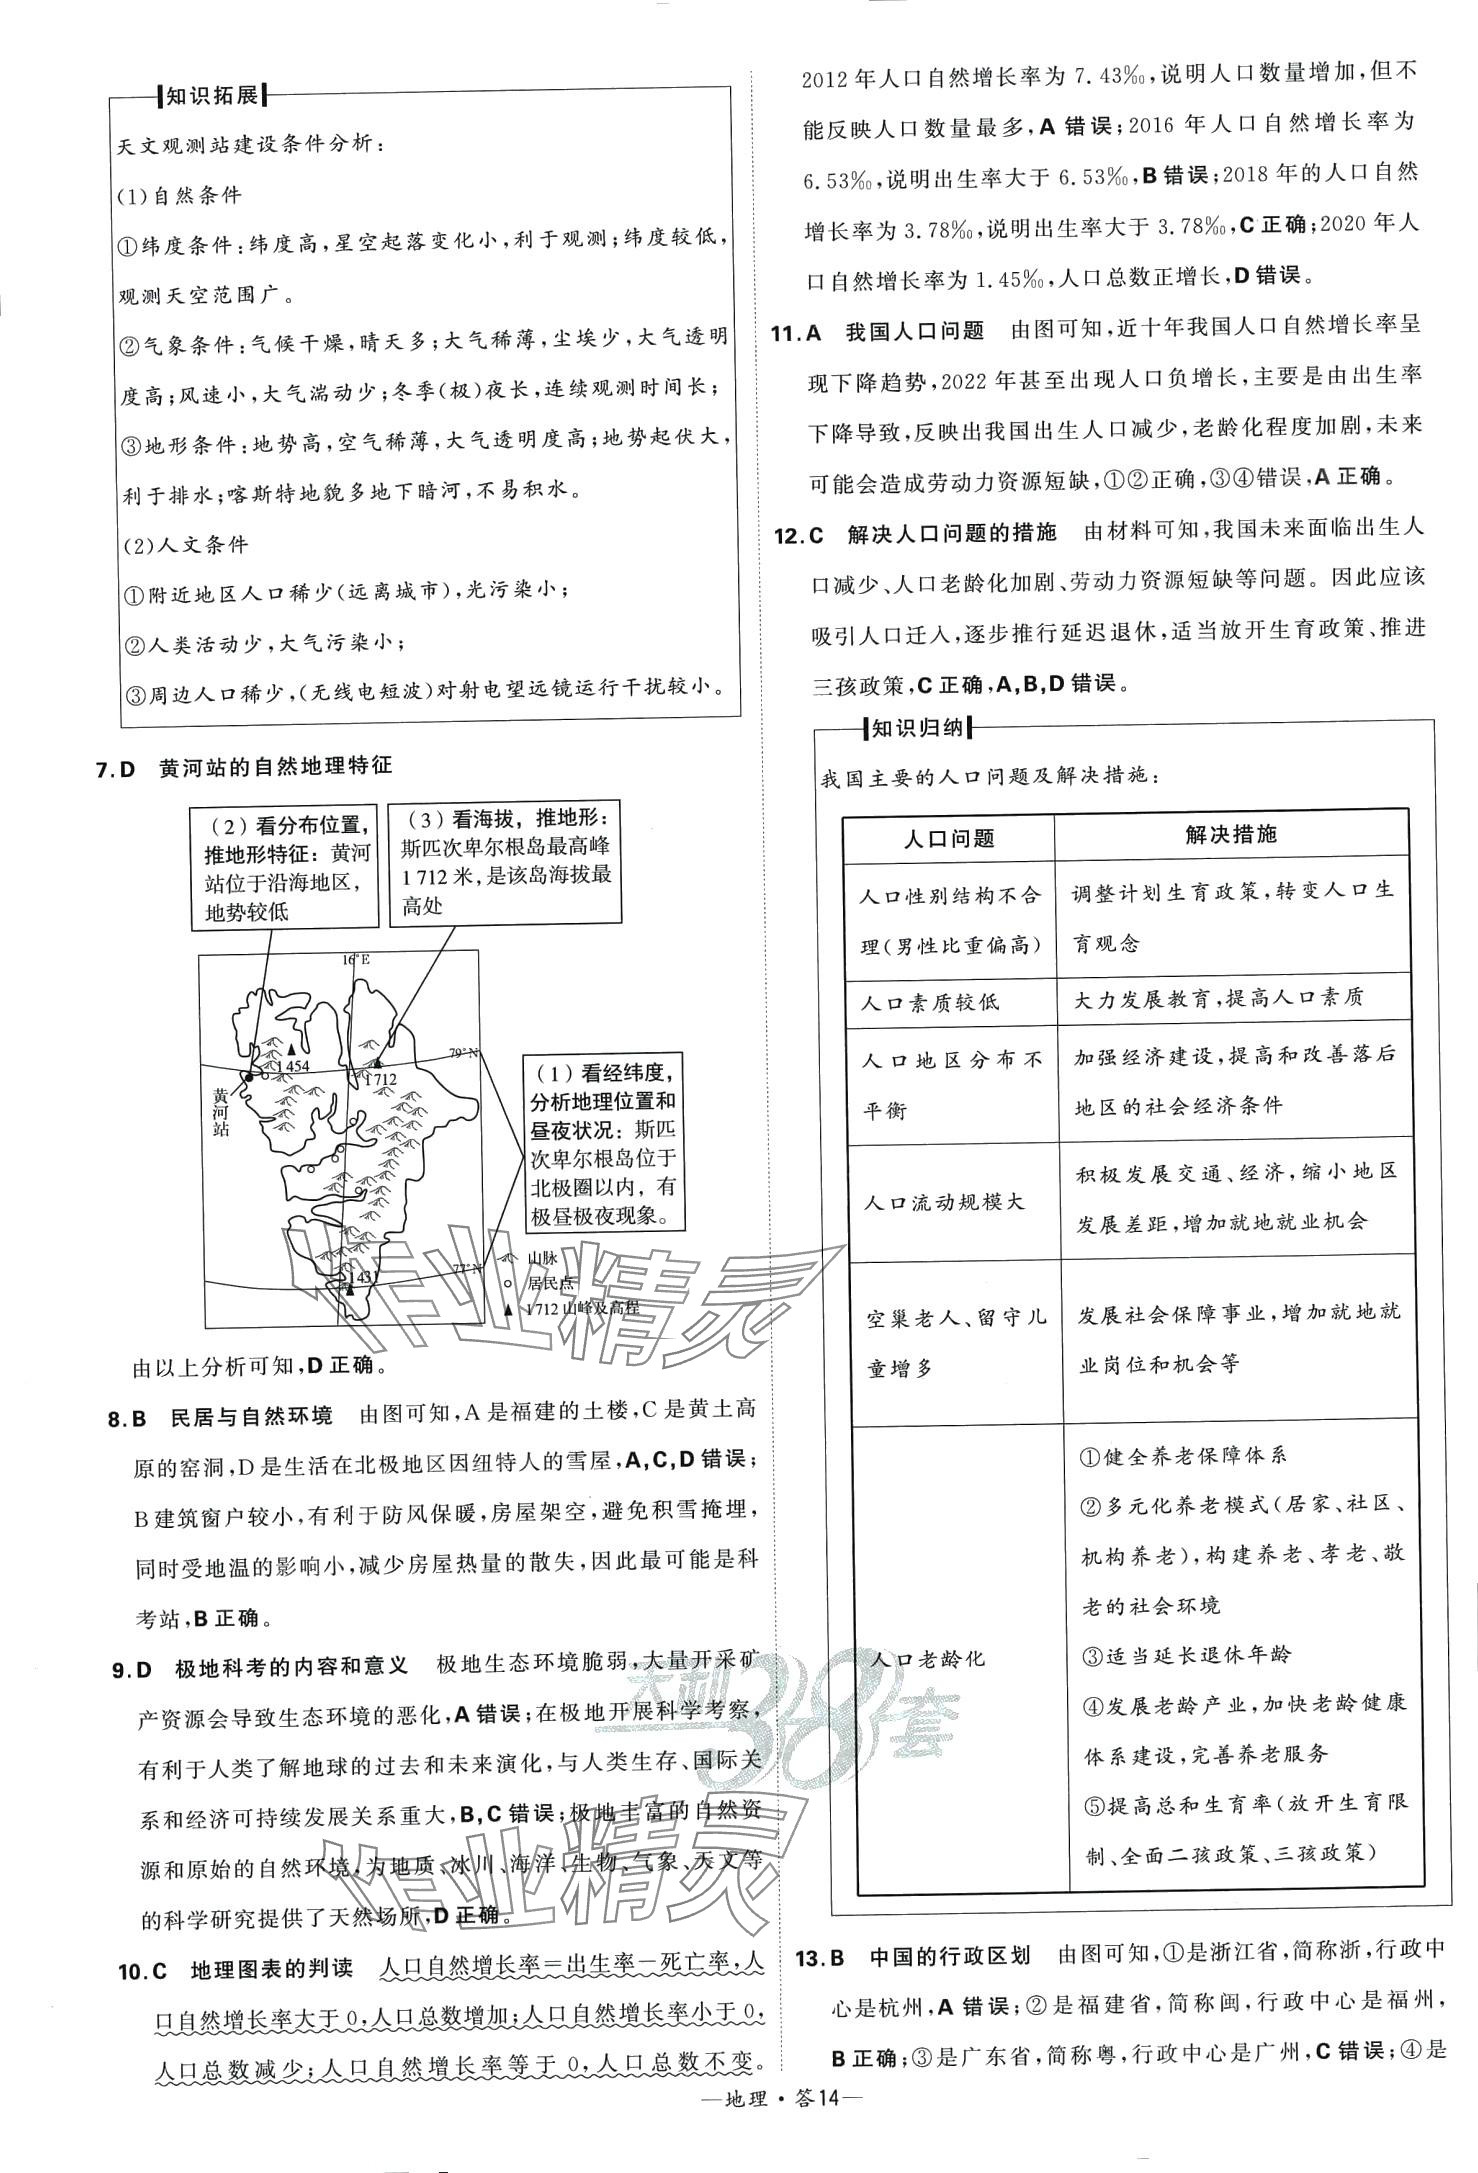 知识拓展
天文观测站建设条件分析:
(1)自然条件
①纬度条件:纬度高,星空起落变化小,利于观测;纬度较低,
观测天空范围广。
②气象条件:气候干燥,晴天多;大气稀薄,尘埃少,大气透明
度高;风速小,大气湍动少;冬季(极)夜长,连续观测时间长;
③地形条件:地势高,空气稀薄,大气透明度高;地势起伏大,
利于排水;喀斯特地貌多地下暗河,不易积水。
(2)人文条件
①附近地区人口稀少(远离城市),光污染小;
②人类活动少,大气污染小;
③周边人口稀少,(无线电短波)对射电望远镜运行干扰较小。
7.D 黄河站的自然地理特征
(2)看分布位置,
推地形特征:黄河
站位于沿海地区,
地势较低
(3)看海拔,推地形:
斯匹次卑尔根岛最高峰
1 712 米,是该岛海拔最
高处
16°E
79°N
1 454
1 712
黄河站
(1)看经纬度,
分析地理位置和
昼夜状况:斯匹
次卑尔根岛位于
北极圈以内,有
极昼极夜现象。
77°N
1431
山脉
居民点
1 712 山峰及高程
由以上分析可知,D 正确。
8.B 民居与自然环境 由图可知,A 是福建的土楼,C 是黄土高
原的窑洞,D 是生活在北极地区因纽特人的雪屋,A,C,D 错误;
B 建筑窗户较小,有利于防风保暖,房屋架空,避免积雪掩埋,
同时受地温的影响小,减少房屋热量的散失,因此最可能是科
考站,B 正确。
9.D 极地科考的内容和意义 极地生态环境脆弱,大量开采矿
产资源会导致生态环境的恶化,A 错误;在极地开展科学考察,
有利于人类了解地球的过去和未来演化,与人类生存、国际关
系和经济可持续发展关系重大,B,C 错误;极地丰富的自然资
源和原始的自然环境,为地质、冰川、海洋、生物、气象、天文等
的科学研究提供了天然场所,D 正确。
10.C 地理图表的判读 人口自然增长率=出生率-死亡率,人
口自然增长率大于 0,人口总数增加;人口自然增长率小于 0,
人口总数减少;人口自然增长率等于 0,人口总数不变。
2012 年人口自然增长率为 7.43‰,说明人口数量增加,但不
能反映人口数量最多,A 错误;2016 年人口自然增长率为
6.53‰,说明出生率大于 6.53‰,B 错误;2018 年的人口自然
增长率为 3.78‰,说明出生率大于 3.78‰,C 正确;2020 年人
口自然增长率为 1.45‰,人口总数正增长,D 错误。
11.A 我国人口问题 由图可知,近十年我国人口自然增长率呈
现下降趋势,2022 年甚至出现人口负增长,主要是由出生率
下降导致,反映出我国出生人口减少,老龄化程度加剧,未来
可能会造成劳动力资源短缺,①②正确,③④错误,A 正确。
12.C 解决人口问题的措施 由材料可知,我国未来面临出生人
口减少、人口老龄化加剧、劳动力资源短缺等问题。因此应该
吸引人口迁入,逐步推行延迟退休,适当放开生育政策、推进
三孩政策,C 正确,A,B,D 错误。
知识归纳
我国主要的人口问题及解决措施:
人口问题 解决措施
人口性别结构不合
理(男性比重偏高)
调整计划生育政策,转变人口生
育观念
人口素质较低 大力发展教育,提高人口素质
人口地区分布不
平衡
加强经济建设,提高和改善落后
地区的社会经济条件
人口流动规模大
积极发展交通、经济,缩小地区
发展差距,增加就地就业机会
空巢老人、留守儿
童增多
发展社会保障事业,增加就地就
业岗位和机会等
人口老龄化
①健全养老保障体系
②多元化养老模式(居家、社区、
机构养老),构建养老、孝老、敬
老的社会环境
③适当延长退休年龄
④发展老龄产业,加快老龄健康
体系建设,完善养老服务
⑤提高总和生育率(放开生育限
制、全面二孩政策、三孩政策)
13.B 中国的行政区划 由图可知,①是浙江省,简称浙,行政中
心是杭州,A 错误;②是福建省,简称闽,行政中心是福州,
B 正确;③是广东省,简称粤,行政中心是广州,C 错误;④是
作业精灵
天利38套
作业精灵
—地理·答14—